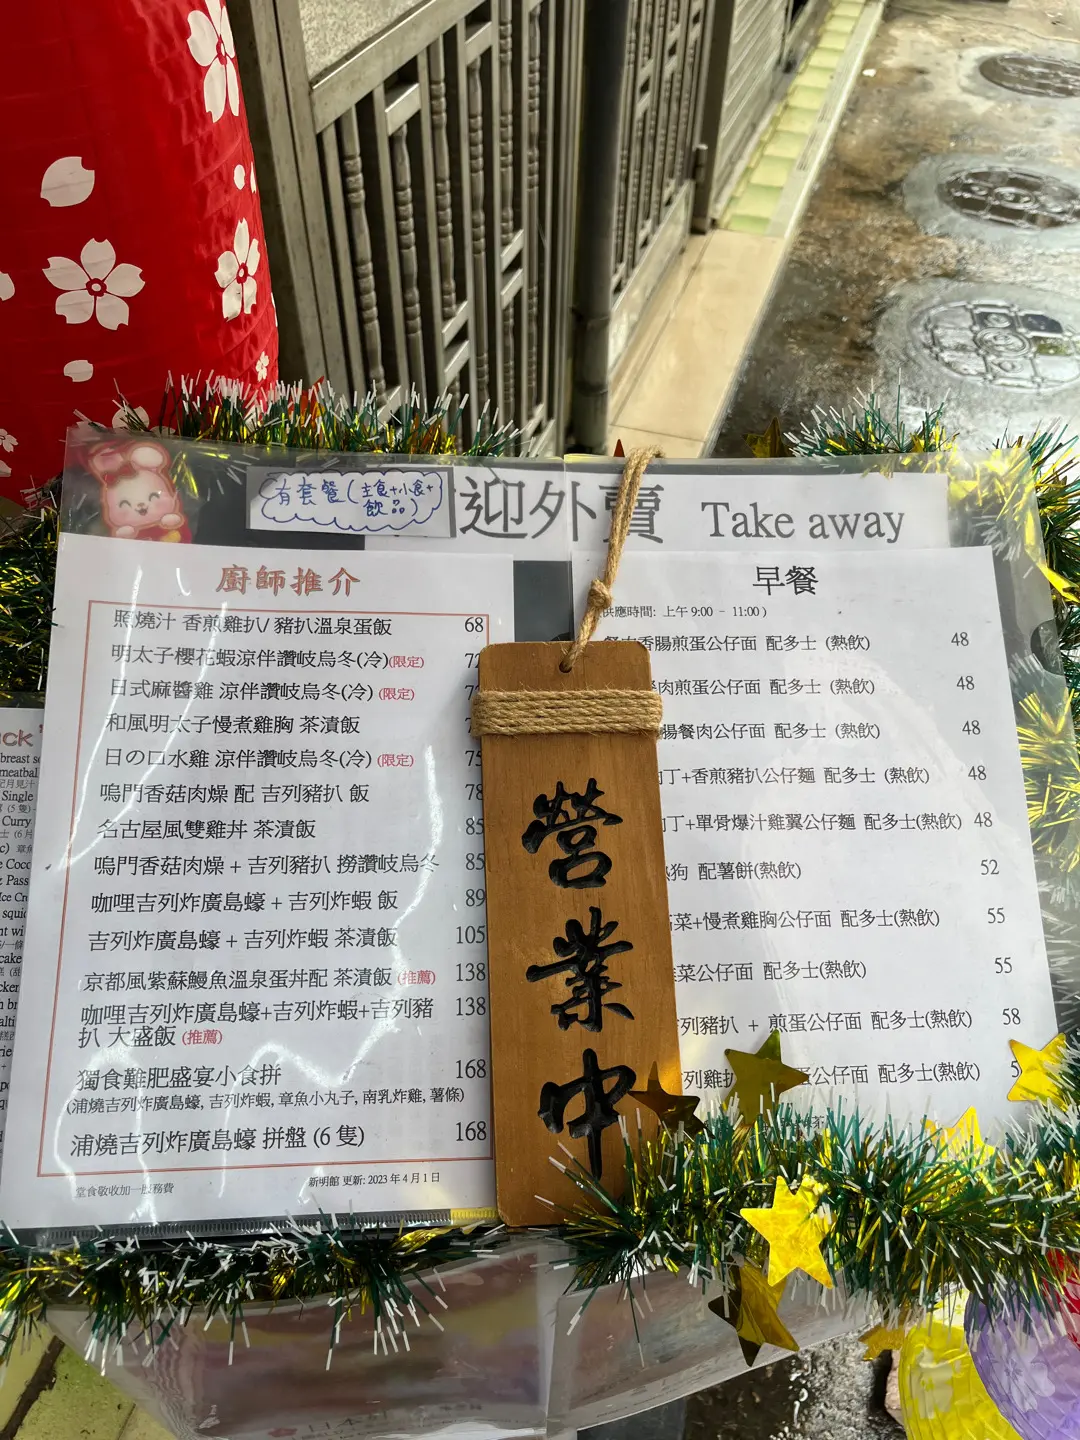 有套餐(主食+小食+
飲品)
迎外賣 Take away
廚師推介
照燒汁 香煎雞扒/ 豬扒溫泉蛋飯 68
明太子櫻花蝦涼伴讚岐烏冬(冷)(限定)
日式麻醬雞 涼伴讚岐烏冬(冷) (限定)
和風明太子慢煮雞胸 茶漬飯
日の口水雞 涼伴讚岐烏冬(冷) (限定) 75
鳴門香菇肉燥 配 吉列豬扒 飯 78
名古屋風雙雞丼 茶漬飯 85
鳴門香菇肉燥 + 吉列豬扒 撈讚岐烏冬 85
咖哩吉列炸廣島蠔 + 吉列炸蝦 飯 89
吉列炸廣島蠔 + 吉列炸蝦 茶漬飯 105
京都風紫蘇鰻魚溫泉蛋丼配 茶漬飯 (推薦) 138
咖哩吉列炸廣島蠔+吉列炸蝦+吉列豬 138
扒 大盛飯 (推薦)
獨食難肥盛宴小食拼 168
(浦燒吉列炸廣島蠔, 吉列炸蝦, 章魚小丸子, 南乳炸雞, 薯條)
浦燒吉列炸廣島蠔 拼盤 (6 隻) 168
堂食敬收加一服務費
新明館 更新: 2023 年 4 月 1 日
營業中
早餐
供應時間: 上午 9:00 - 11:00 )
香腸煎蛋公仔面 配多士 (熱飲) 48
肉煎蛋公仔面 配多士 (熱飲) 48
腸餐肉公仔面 配多士 (熱飲) 48
丁+香煎豬扒公仔麵 配多士 (熱飲) 48
丁+單骨爆汁雞翼公仔麵 配多士(熱飲) 48
狗 配薯餅(熱飲) 52
菜+慢煮雞胸公仔面 配多士(熱飲) 55
菜公仔面 配多士(熱飲) 55
列豬扒 + 煎蛋公仔面 配多士(熱飲) 58
列雞扒 蛋公仔面 配多士(熱飲)